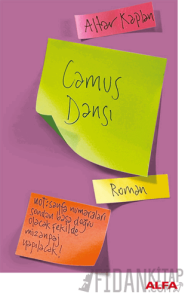 Altar Kaplan
Camus
Dansı
Roman
not: sayfa numaraları
sondan başa doğru
olacak şekilde
mizanpaj
yapılacak!
FİDANKİTAP
ALFA